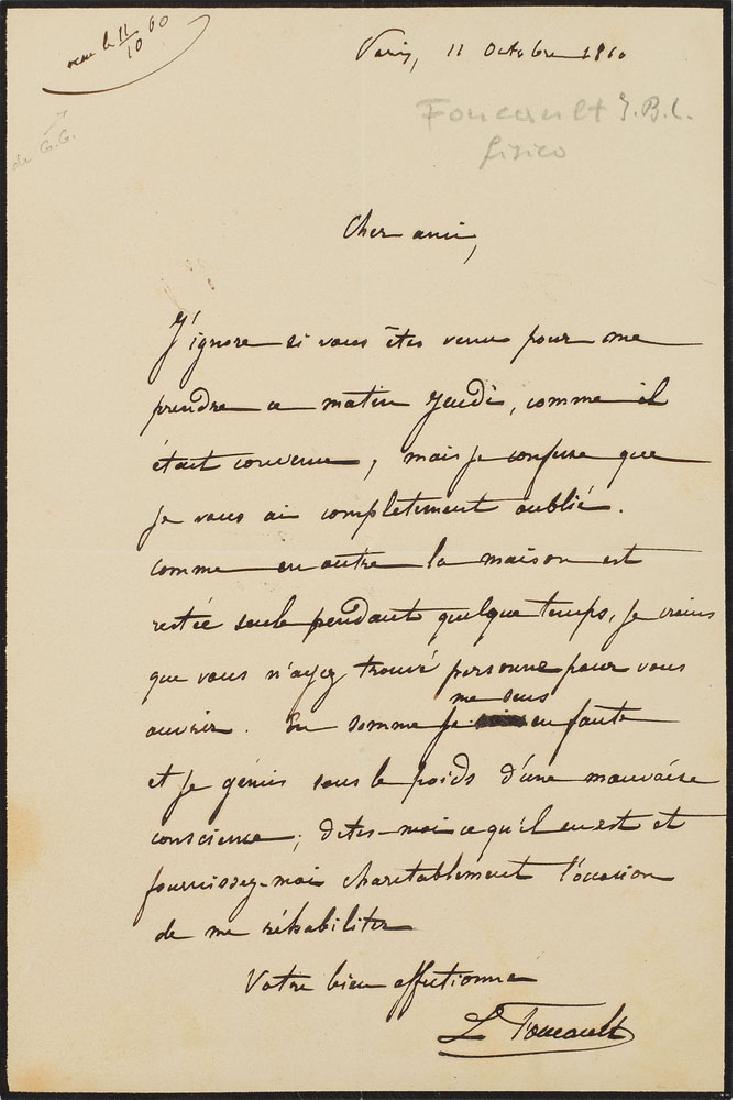 reçu le 11/10 60
de G.G.
Paris, 11 Octobre 1860
Foucault J.B.L.
fisico
Cher ami,
J'ignore si vous êtes venu pour me
prendre ce matin Jeudi, comme il
était convenu, mais je confesse que
je vous ai complètement oublié.
Comme en outre la maison est
restée seule pendant quelque temps, je crains
que vous n'ayez trouvé personne pour vous
me sens
ouvrir. En somme je en faute
et je gémis sous le poids d'une mauvaise
conscience; dites-moi ce qu'il en est et
fournissez-moi charitablement l'occasion
de me réhabiliter
Votre bien affectionné
L Foucault